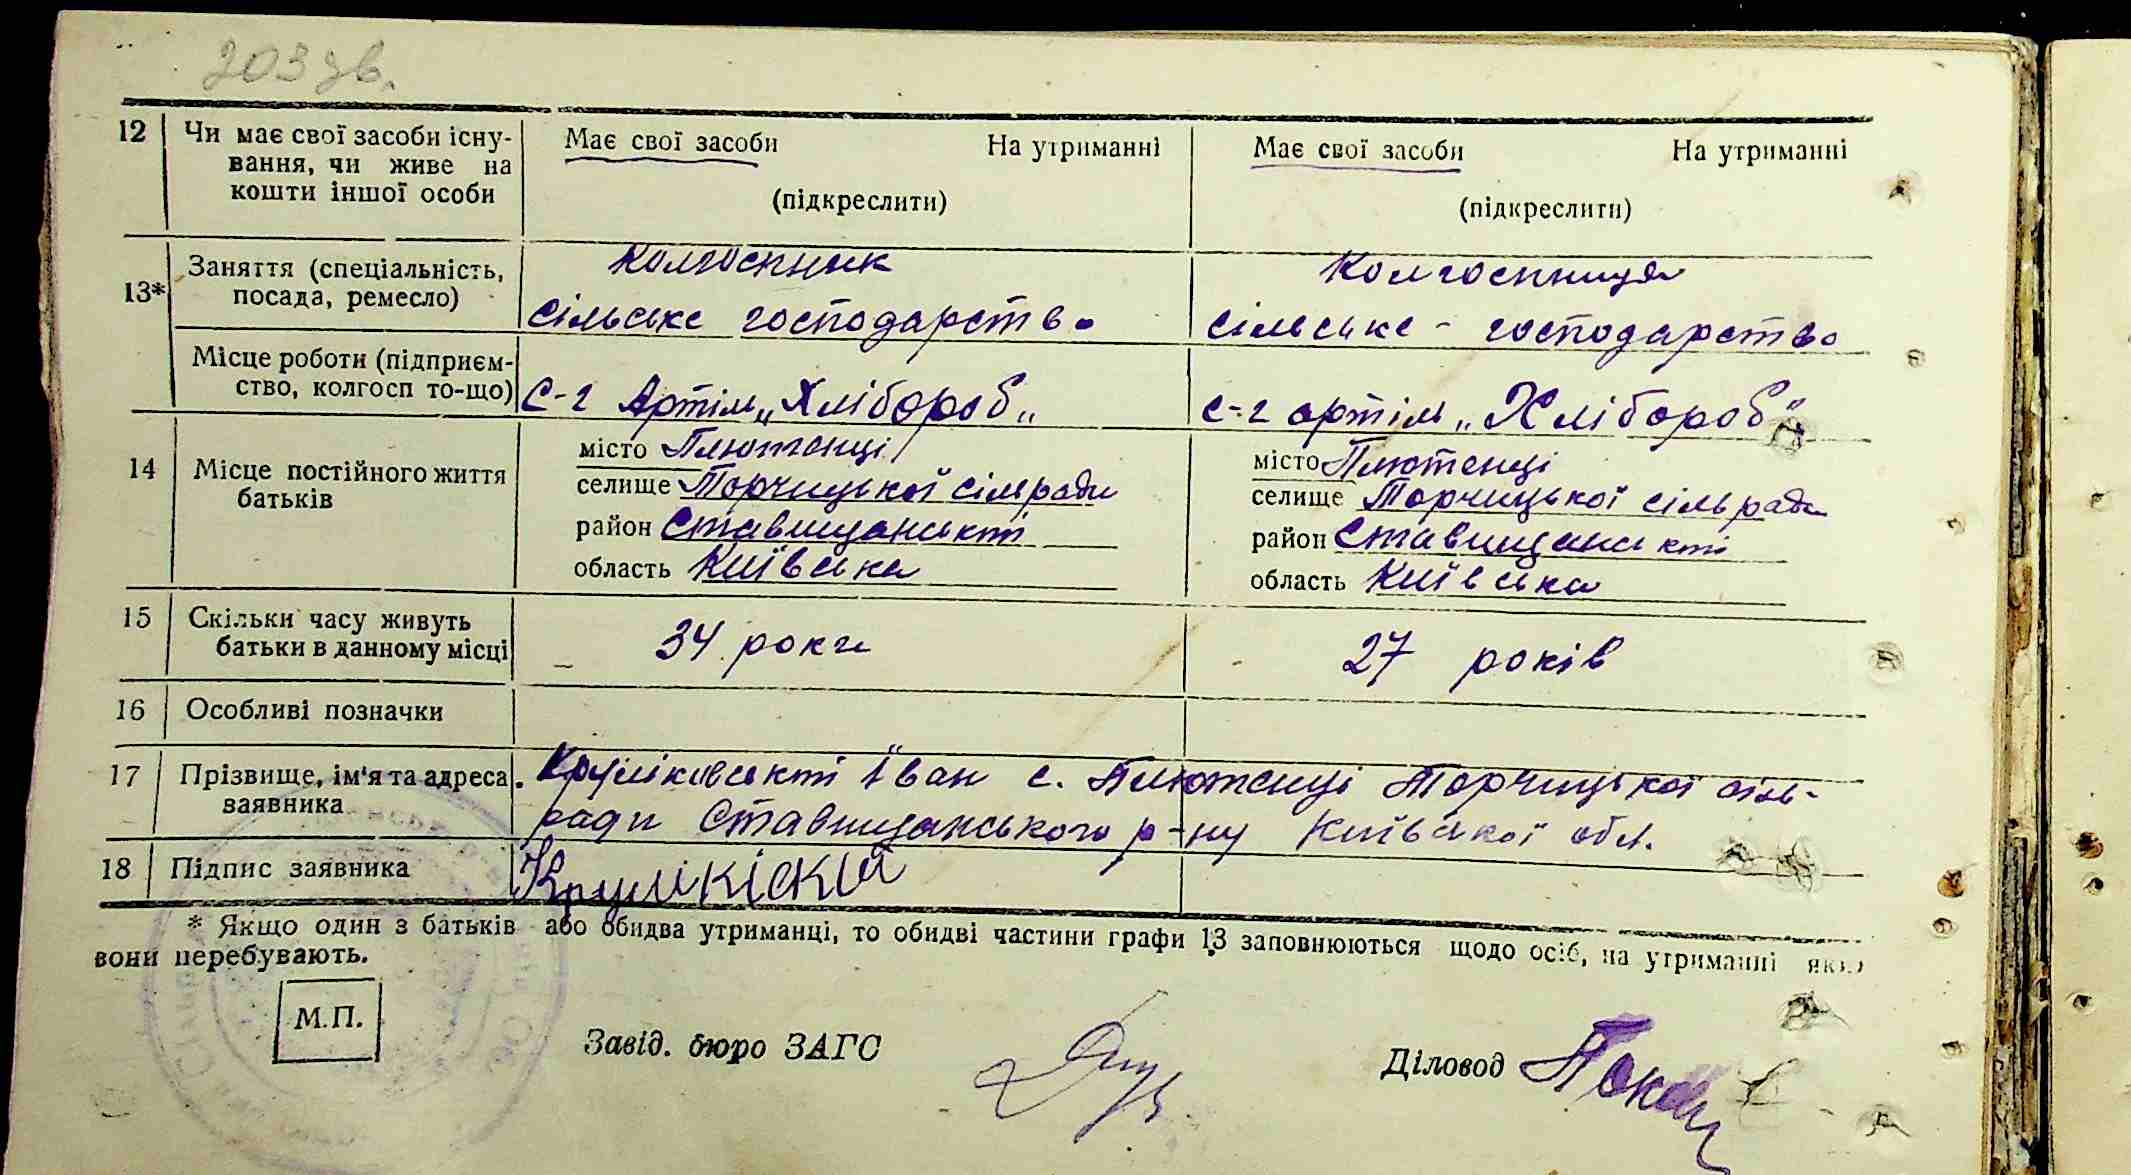 203 зв.
12 Чи має свої засоби існу- Має свої засоби На утриманні Має свої засоби На утриманні
вання, чи живе на
кошти іншої особи (підкреслити) (підкреслити)
13* Заняття (спеціальність, Колгоспник Колгоспниця
посада, ремесло) сільське господарство сільське - господарство
Місце роботи (підприєм-
ство, колгосп то-що) С-г Артіль „Хлібороб„ с-г артіль „Хлібороб"
14 Місце постійного життя місто Плютенці місто Плютенці
батьків селище Торчицької сільради селище Торчицької сільради
район Ставищанскті район Ставищанскті
область Київська область Київська
15 Скільки часу живуть 34 роки 27 років
батьки в данному місці
16 Особливі позначки
17 Прізвище, ім'я та адреса Круліковскті Іван с. Плютенці Торчицької сіль-
заявника ради Ставищанського р-ну Київської обл.
18 Підпис заявника Круликіскій
* Якщо один з батьків або обидва утриманці, то обидві частини графи 13 заповнюються щодо осіб, на утриманні яких
вони перебувають.
М.П.
Завід. бюро ЗАГС Діловод